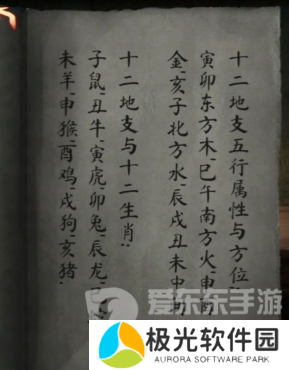 十二地支五行属性与方位
寅卯东方木、巳午南方火、申酉
金、亥子北方水、辰戌丑未中
十二地支与十二生肖
子鼠、丑牛、寅虎、卯兔、辰龙、巳
未羊、申猴、酉鸡、戌狗、亥猪
爱东东手游
极光软件园
AURORA SOFTWARE PARK